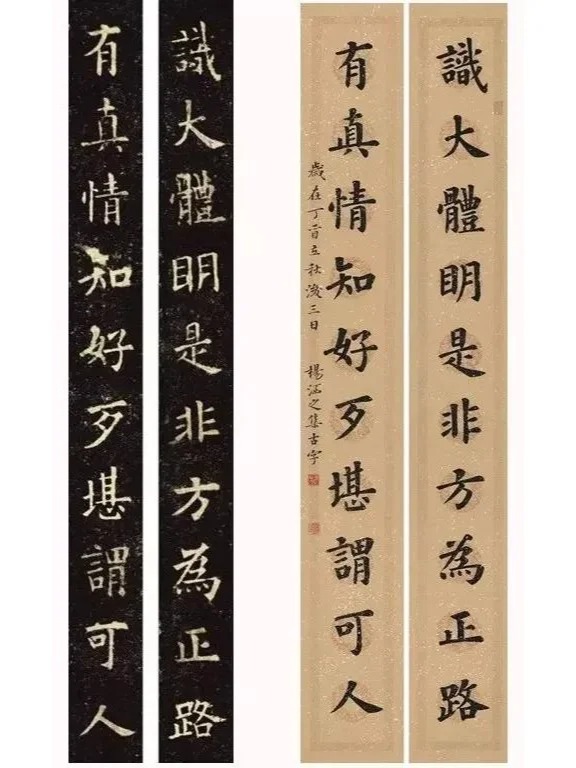 識大體眀是非方為正路
有真情知好歹堪謂可人
歲在丁酉立秋後三日 楊涵之集古字
識大體眀是非方為正路
有真情知好歹堪謂可人